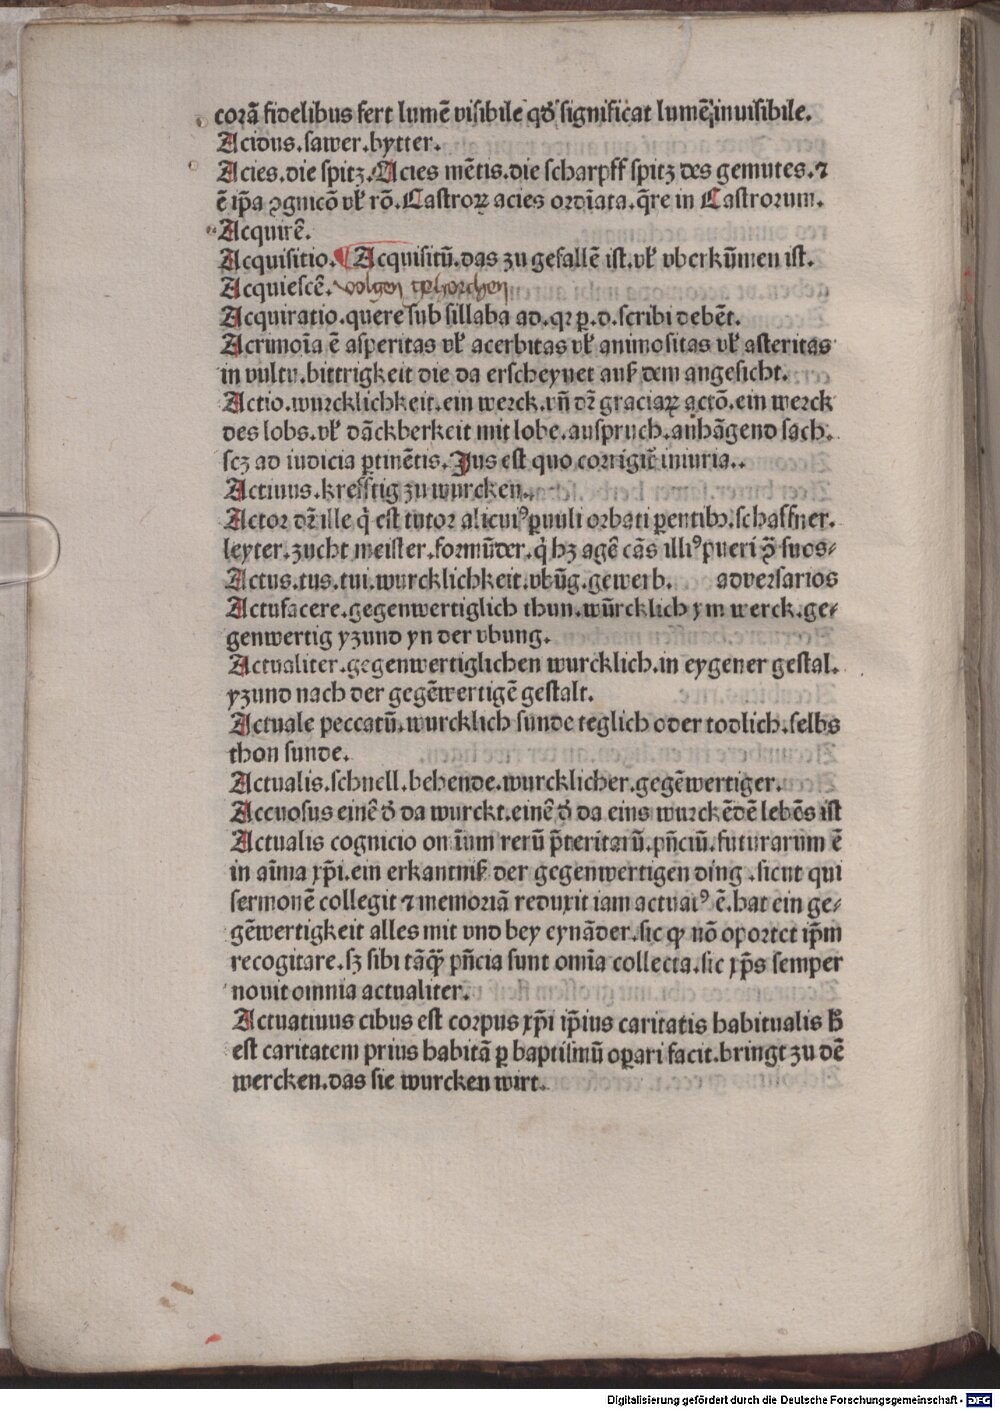 corā fidelibus fert lumē visibile qď significat lumē inuisibile.
Acidus.sawer.bytter.
Acies.die spitz.Acies mētis.die scharpff spitz des gemutes.⁊
ē ip̄a ꝯgnicō vł rō.Castroꝝ acies ordīata.q̄re in Castrorum.
Acquirē.
Acquisitio. Acquisitū.das zu gefallē ist.vł vberkūmen ist.
Acquiescē. volgen gehorchen
Acquiratio.quere sub sillaba ad.qꝛ ꝑ.d.scribi debēt.
Acrimoīa ē asperitas vł acerbitas vł animositas vł asteritas
in vultu.bittrigkeit die da erscheynet auß dem angesicht.
Actio.wurcklichkeit.ein werck.vñ dꝛ̄ graciaꝝ actō.ein werck
des lobs.vł dāckberkeit mit lobe.anspruch.anhāgend sach.
scꝫ ad iudicia ꝑtinētis.Jus est quo corrigiť iniuria..
Actiuus.krefftig zu wurcken.
Actor dꝛ̄ ille q̇ est tutor alicuiꝰ ꝑuuli orbati ꝑentibꝫ.schaffner.
leyter.zucht meister.formūder.q̇ hꝫ agē cās illiꝰ pueri ꝯ̄ suos⸗
Actus.tus.tui.wurcklichkeit.vbūg.gewerb. adversarios
Actufacere.gegenwertiglich thun.wūrcklich ym werck.ge⸗
genwertig yzund yn der vbung.
Actualiter.gegenwertiglichen wurcklich.in eygener gestal.
yzund nach der gegēwertigē gestalt.
Actuale peccatū.wurcklich sunde teglich oder todlich.selbs
thon sunde.
Actualis.schnell.behende.wurcklicher.gegēwertiger.
Accuosus einē ď da wurckt.einē ď da eins wurckēdē lebēs ist
Actualis cognicio onīum rerū p̄teritarū.pn̄ciū.futurarum ē
in aīma xp̄i.ein erkantniß der gegenwertigen ding .sicut qui
sermonē collegit ⁊ memoriā reduxit iam actuaiꝰ ē.hat ein ge⸗
gēwertigkeit alles mit vnd bey eynāder.sic ꝙ nō oportet ip̄m
recogitare.sꝫ sibi tāꝙ̄ pn̄cia sunt omīa collecta.sic xp̄s semper
nouit omnia actualiter.
Actuatiuus cibus est corpus xp̄i ip̄ius caritatis habitualis ꝟ
est caritatem prius habitā ꝑ baptismū oꝑari facit.bringt zu dē
wercken.das sie wurcken wirt.
Digitalisierung gefördert durch die Deutsche Forschungsgemeinschaft - DFG